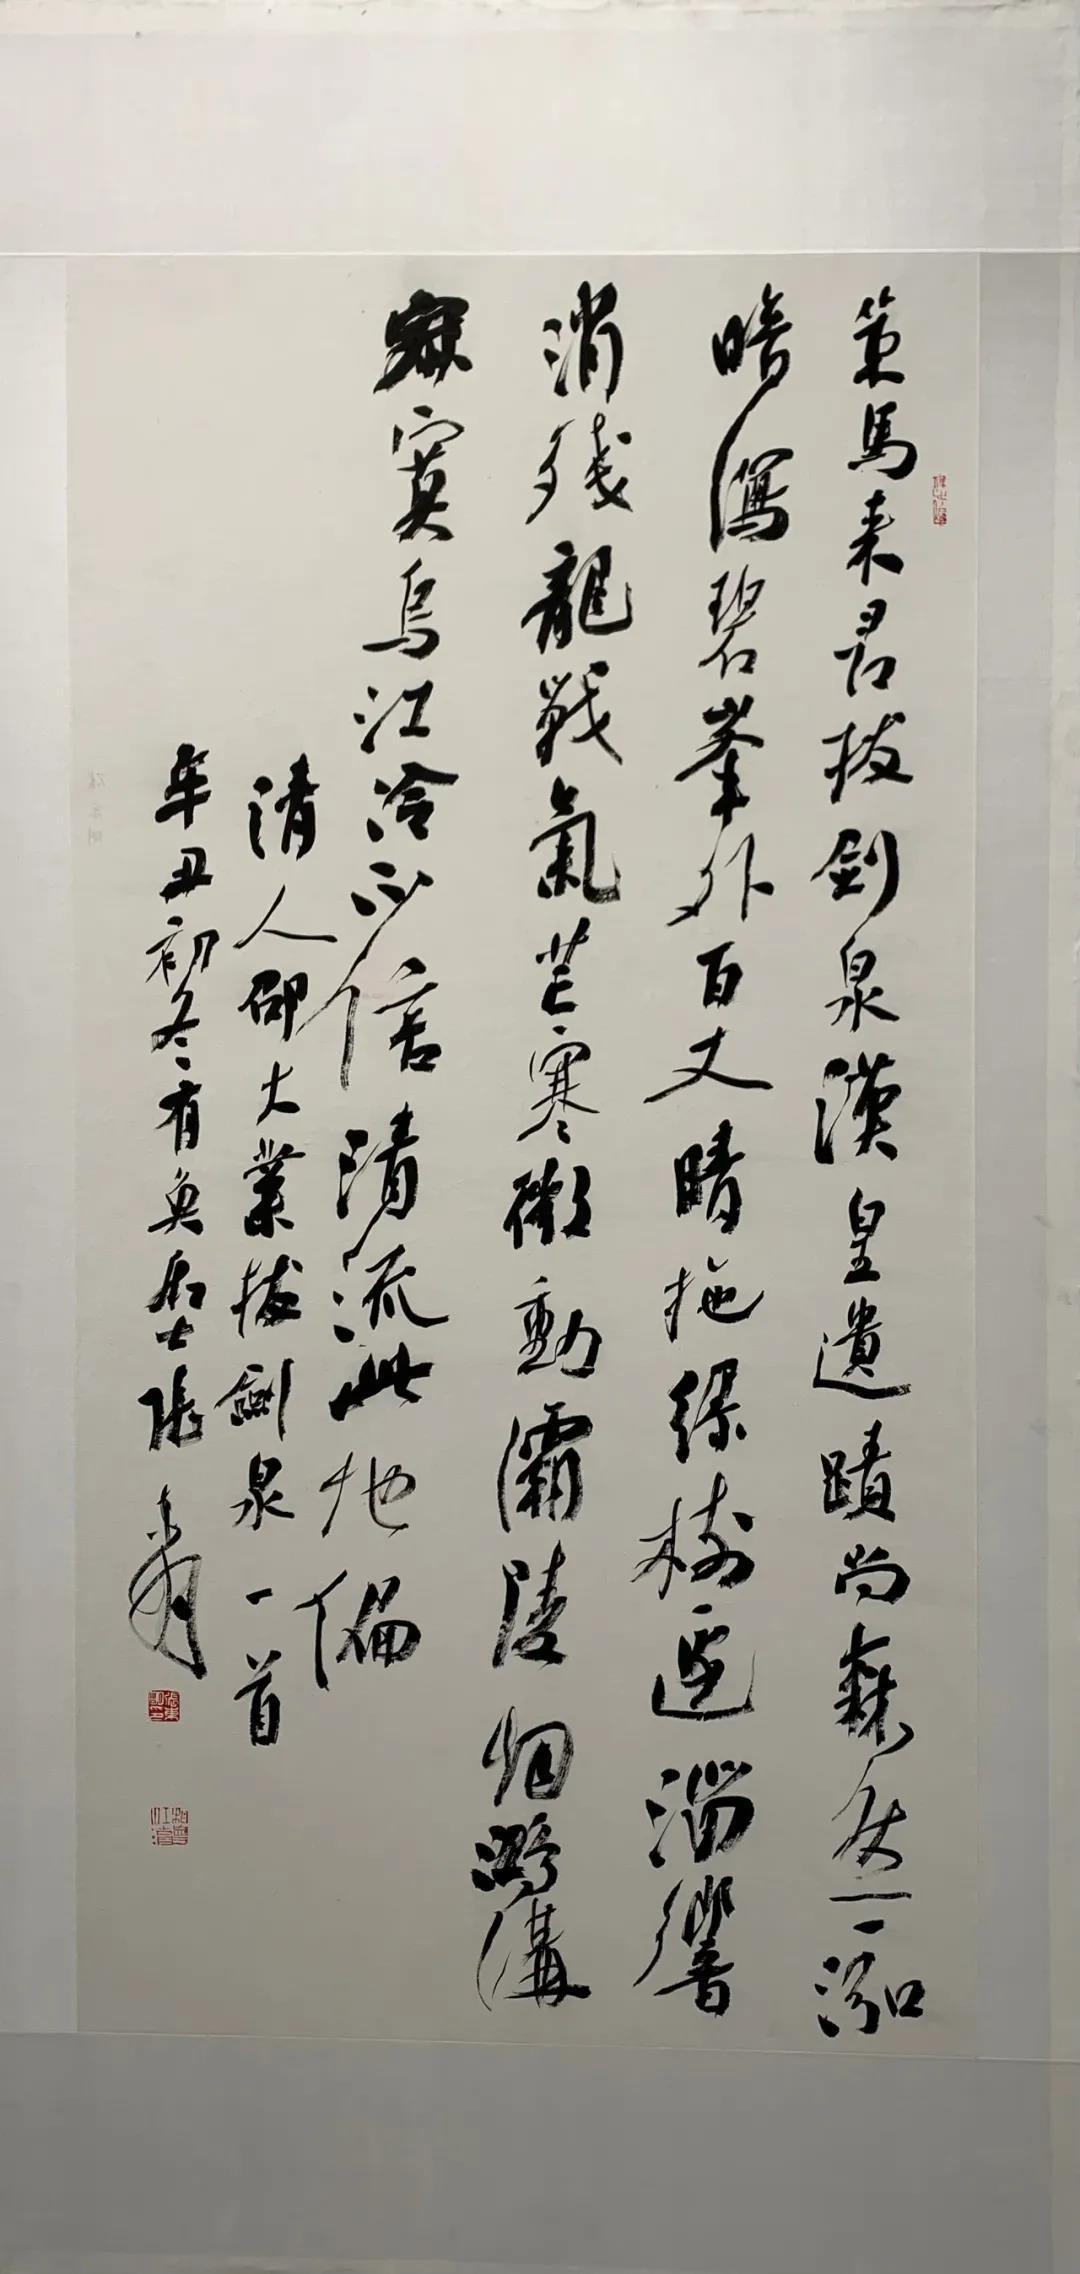 策馬來尋拔劍泉漢皇遺蹟尚森然一泓
暗瀉碧峯外百丈晴拖綠樹邊溜響
消殘龍戰氣芒寒微動灞陵烟鴻溝
寂寞烏江冷不信清流此地偏
清人邵大業拔劍泉一首
辛丑初冬有魚居士張東明